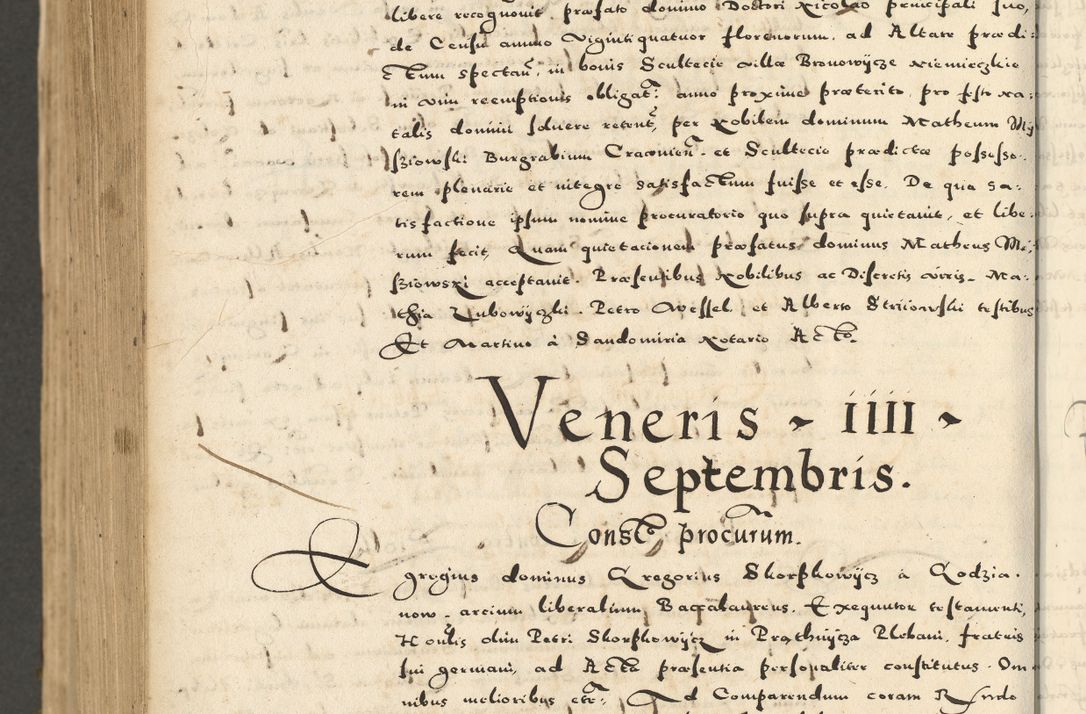 libere recognovit, præfato domino Doctori Nicolao principali suo,
de Censu annuo Viginti quatuor florenorum, ad Altare prædi-
ctum spectan̄, in bonis Scultecie villæ Bronowÿcze niemieczkie
in vim reemptionis obligat: anno proxime præterito, pro festo na:
talis domini solvere retent, per Nobilem dominum Matheum Mÿ
sziowski Burgrabium Cracovien̄. et Scultecie prædictæ possesso-
rem plenarie et integre satisfactum fuisse et esse. De qua sa:
tisfactione ipsum nomine procuratorio quo supra quietavit, et libe:
rum fecit, Quam quietacionem præfatus dominus Matheus Mi,
sziowski acceptavit. Præsentibus Nobilibus ac Discretis viris Ma:
thia Lubowÿczki. Petro Wessel, et Alberto Strijowski testibus
Et Martino à Sandomiria Notario Acto.
Veneris ~ IIII ~
Septembris.
Const procurum.
Egregius dominus Gregorius Skorpkowÿcz à Godzia.
now. arcium liberalium Baccalaureus. Exequutor testamenti,
Honlis olim Petri Skorpkowÿcz in Plebani, fratris
sui germani, ad Acta præsentia personaliter constitutus. Om
nibus melioribus etc. Ad Comparendum coram Rndo